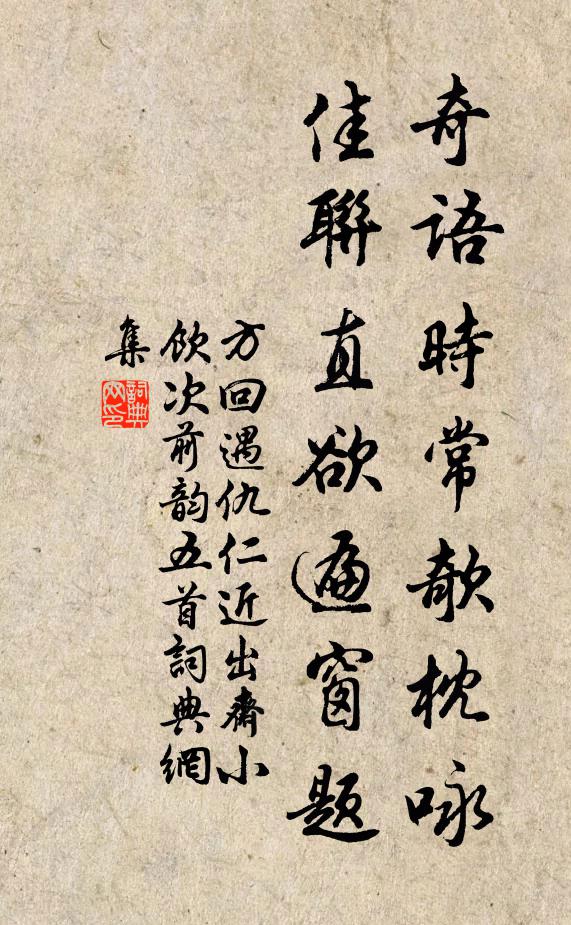 奇語時常欹枕咏
佳聯直欲遍窗題
方回遇仇仁近出齋小
飲次前韵五首詞典網
集
詞典
网印